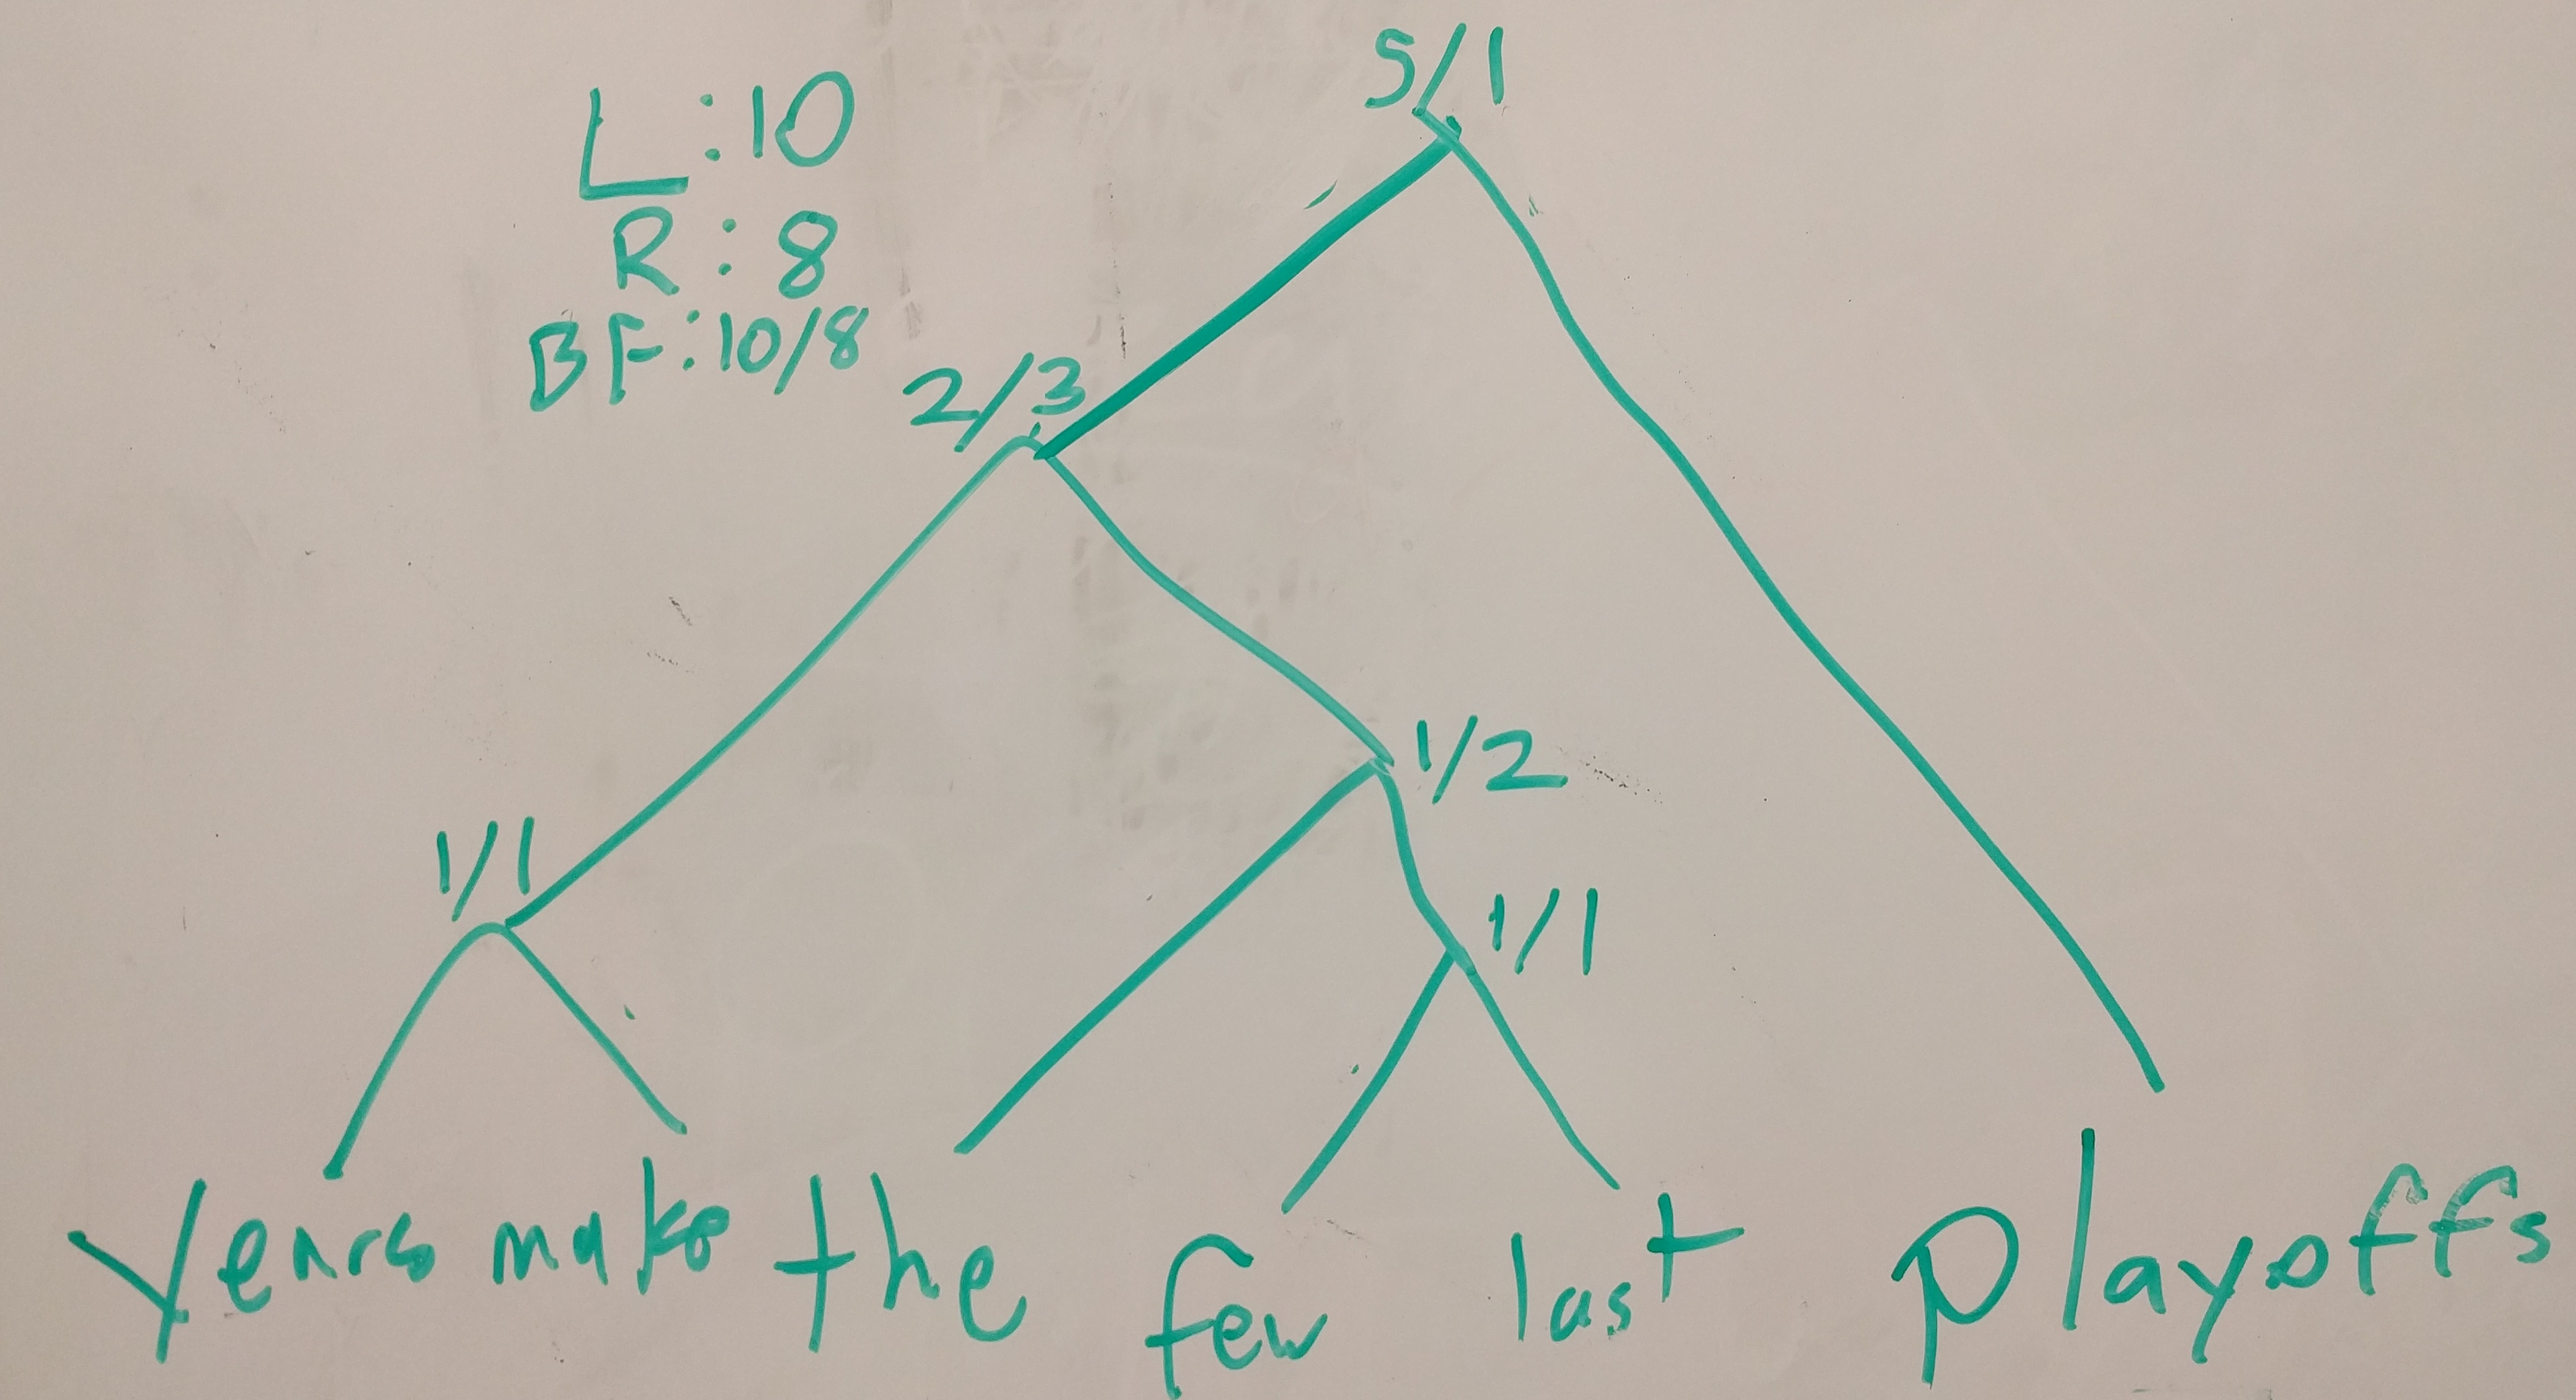 5/1
L:10
R:8
BF:10/8
2/3
1/2
1/1
1/1
Years make the few last playoffs